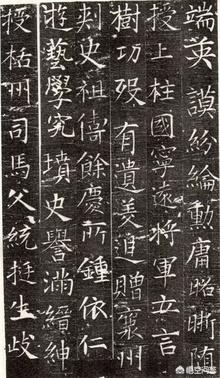 端英謨紛綸勳庸昭晰隨
授上柱國寧遠將軍玄言
樹功歿有遺美追贈襄州
刺史祖儔餘慶所鍾依仁
遊藝學究墳史譽滿縉紳
授栝州司馬父統挺生歧
悟空问答